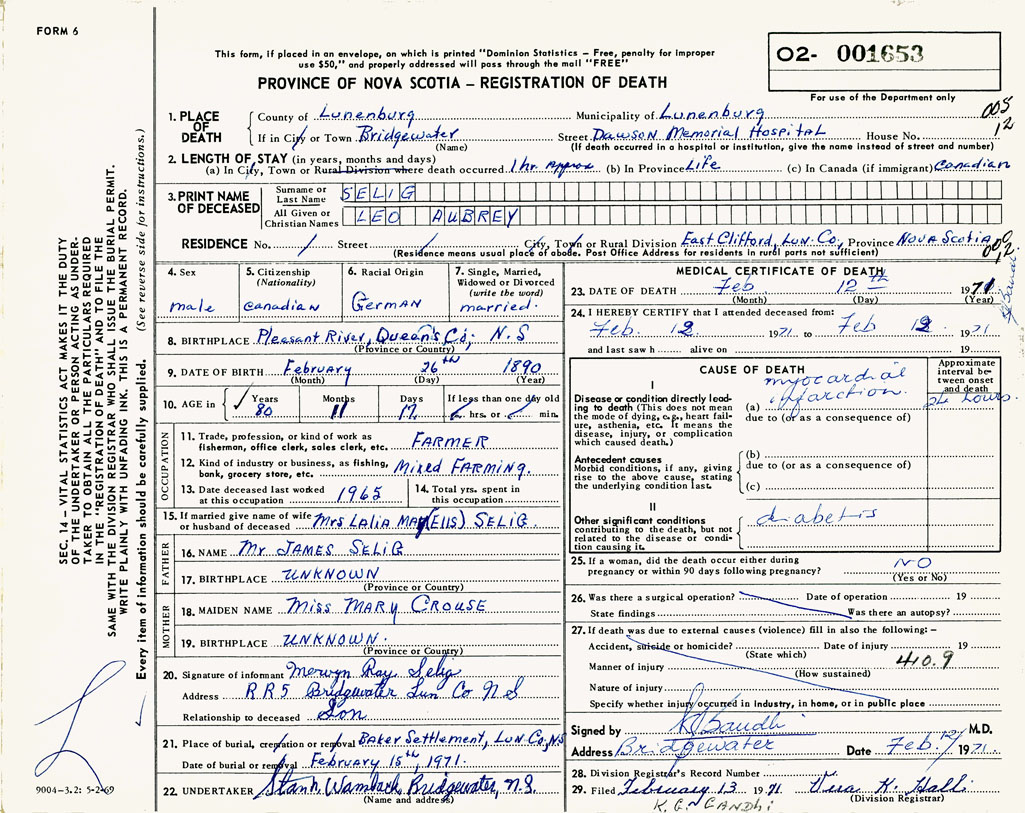 FORM 6
This form, if placed in an envelope, on which is printed "Dominion Statistics – Free, penalty for improper
use $50," and properly addressed will pass through the mail "FREE"
PROVINCE OF NOVA SCOTIA – REGISTRATION OF DEATH
02- 001653
For use of the Department only
005
12
1. PLACE OF DEATH
County of Lunenburg Municipality of Lunenburg
If in City or Town Bridgewater Street Dawson Memorial Hospital House No.
(Name) (If death occurred in a hospital or institution, give the name instead of street and number)
2. LENGTH OF STAY (in years, months and days)
(a) In City, Town or Rural Division where death occurred 1 hr. Approx (b) In Province Life (c) In Canada (if immigrant) Canadian
3. PRINT NAME OF DECEASED
Surname or Last Name SELIG
All Given or Christian Names LEO AUBREY
RESIDENCE No. / Street / City, Town or Rural Division East Clifford, Lun. Co., Province Nova Scotia
(Residence means usual place of abode. Post Office Address for residents in rural parts not sufficient)
4. Sex
male
5. Citizenship
(Nationality)
Canadian
6. Racial Origin
German
7. Single, Married,
Widowed or Divorced
(write the word)
married
8. BIRTHPLACE Pleasant River, Queen's Co; N.S
(Province or Country)
9. DATE OF BIRTH February 26th 1890
(Month) (Day) (Year)
10. AGE in Years Months Days If less than one day old
80 11 17 hrs. or min.
OCCUPATION
11. Trade, profession, or kind of work as
fisherman, office clerk, sales clerk, etc. FARMER
12. Kind of industry or business, as fishing,
bank, grocery store, etc. Mixed FARMING.
13. Date deceased last worked
at this occupation 1965
14. Total yrs. spent in
this occupation
15. If married give name of wife
or husband of deceased Mrs LALIA MAY (Ells) SELIG.
FATHER
16. NAME Mr. JAMES SELIG
17. BIRTHPLACE UNKNOWN
(Province or Country)
MOTHER
18. MAIDEN NAME Miss MARY CROUSE
19. BIRTHPLACE UNKNOWN.
(Province or Country)
20. Signature of informant Merwyn Ray Selig
Address R R 5 Bridgewater Lun Co N S
Relationship to deceased Son
21. Place of burial, cremation or removal BAKER SETTLEMENT, LUN Co, NS
Date of burial or removal February 15th, 1971.
22. UNDERTAKER Bridgewater, N.S.
(Name and address)
MEDICAL CERTIFICATE OF DEATH
23. DATE OF DEATH Feb 12th 1971
(Month) (Day) (Year)
24. I HEREBY CERTIFY that I attended deceased from:
Feb. 12 1971 to Feb 12 1971
and last saw h alive on 19
CAUSE OF DEATH
Approximate interval between onset and death
I
Disease or condition directly leading to death (This does not
mean the mode of dying, e.g., heart failure, asthenia, etc. It means the
disease, injury, or complication
which caused death.)
myocardial
(a) infarction. 24 hours.
due to (or as a consequence of)
Antecedent causes
Morbid conditions, if any, giving
rise to the above cause, stating
the underlying condition last.
(b)
due to (or as a consequence of)
(c)
II
Other significant conditions
contributing to the death, but not
related to the disease or condition causing it.
diabetis
25. If a woman, did the death occur either during
pregnancy or within 90 days following pregnancy? NO
(Yes or No)
26. Was there a surgical operation? Date of operation 19
State findings Was there an autopsy?
27. If death was due to external causes (violence) fill in also the following: –
Accident, suicide or homicide? Date of injury 19
(State which)
Manner of injury 410.9
(How sustained)
Nature of injury
Specify whether injury occurred in industry, in home, or in public place
Signed by Gandhi M.D.
Address Bridgewater Date Feb. 12/ 1971.
28. Division Registrar's Record Number
29. Filed February 13 1971 Vera K. Hall
(Division Registrar)
K. G. GANDHI
SEC. 14 – VITAL STATISTICS ACT MAKES IT THE DUTY
OF THE UNDERTAKER OR PERSON ACTING AS UNDER-
TAKER TO OBTAIN ALL THE PARTICULARS REQUIRED
IN THE "REGISTRATION OF DEATH" AND TO FILE THE
SAME WITH THE DIVISION REGISTRAR WHO SHALL ISSUE THE BURIAL PERMIT.
WRITE PLAINLY WITH UNFADING INK. THIS IS A PERMANENT RECORD.
Every item of information should be carefully supplied. (See reverse side for instructions.)
9004-3.2: 5-2-69